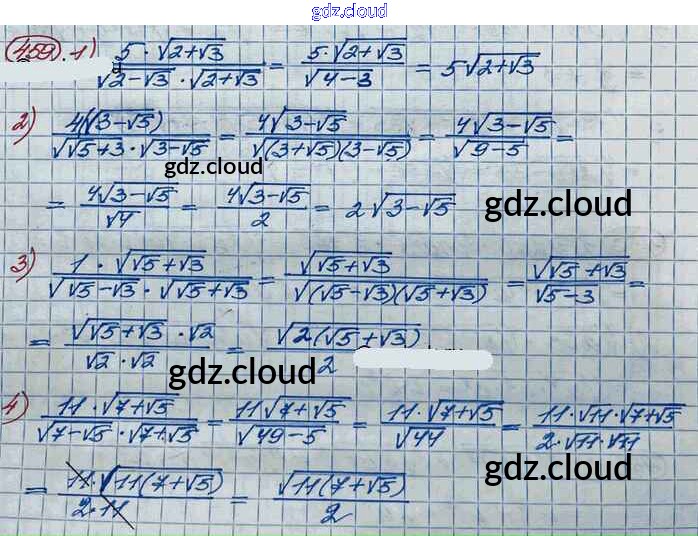 gdz.cloud
gdz.cloud
459. 1) (5·√(2+√3))/(√(2-√3)·√(2+√3)) = (5·√(2+√3))/√(4-3) = 5√(2+√3)
2) (4(√(3-√5)))/(√(√5+3)·√(3-√5)) = (4√(3-√5))/√((3+√5)(3-√5)) = (4√(3-√5))/√(9-5) =
gdz.cloud
= (4√(3-√5))/√4 = (4√(3-√5))/2 = 2√(3-√5)
gdz.cloud
3) (1·√(√5+√3))/(√(√5-√3)·√(√5+√3)) = √(√5+√3)/√((√5-√3)(√5+√3)) = √(√5+√3)/√(5-3) =
= (√(√5+√3)·√2)/(√2·√2) = √(2(√5+√3))/2
gdz.cloud
4) (11·√(7+√5))/(√(7-√5)·√(7+√5)) = (11√(7+√5))/√(49-5) = (11·√(7+√5))/√44 = (11·√11·√(7+√5))/(2·√11·√11)
= (11·√(11(7+√5)))/(2·11) = √(11(7+√5))/2
gdz.cloud